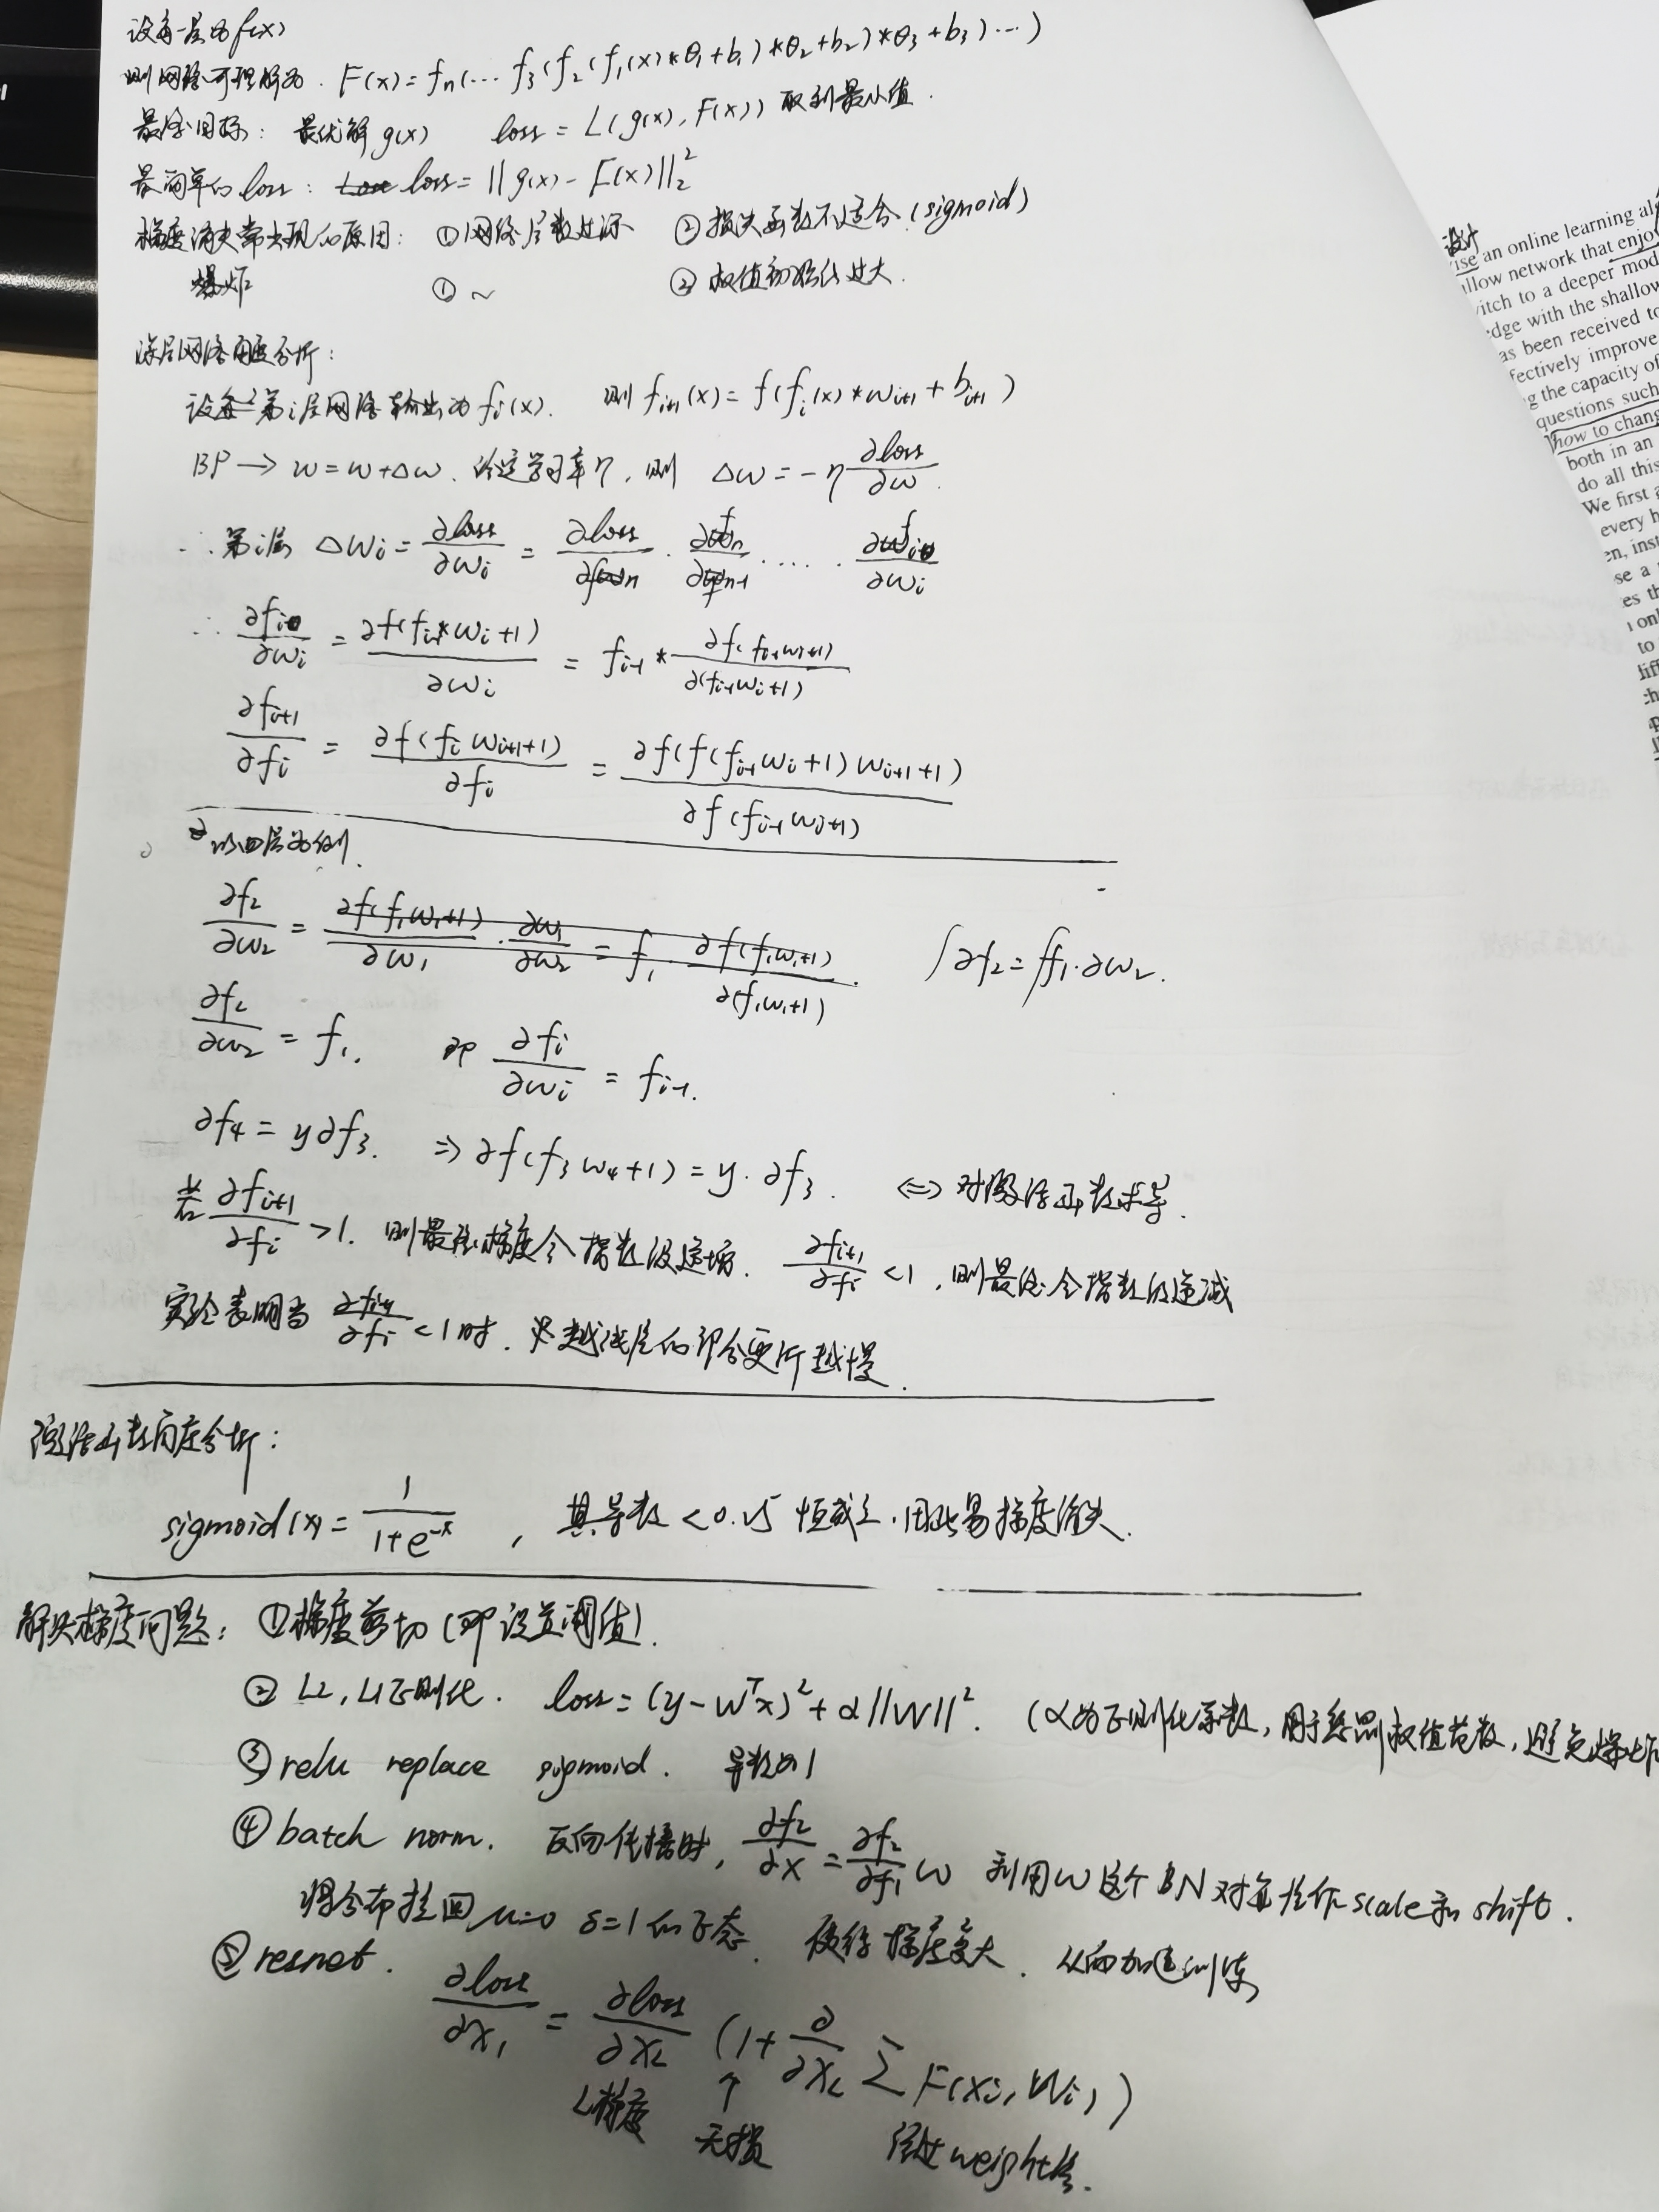 设每一层为f(x)
则网络可理解为. F(x)=fn(… f3(f2(f1(x)*θ1+b1)*θ2+b2)*θ3+b3)…)
最终目标: 最优解g(x) loss = L(g(x), F(x)) 取到最小值.
最简单的loss: loss = ||g(x) - F(x)||₂²
梯度消失常出现的原因: ①网络层数过深 ②损失函数不适合(sigmoid)
爆炸 ①~ ②权值初始化过大.
深层网络角度分析:
设第i层网络输出为fi(x). 则 fi+1(x) = f(fi(x)*wi+1 + bi+1)
BP → w=w+Δw. 给定学习率η, 则 Δw = -η ∂loss/∂w.
∴第i层 Δwi = ∂loss/∂wi = ∂loss/∂fn · ∂fn/∂fn-1 ····· ∂fi/∂wi
∴ ∂fi/∂wi = ∂f(fi-1*wi+1)/∂wi = fi-1 * ∂f(fi-1wi+1)/∂(fi-1wi+1)
∂fi+1/∂fi = ∂f(fi wi+1+1)/∂fi = ∂f(f(fi-1wi+1)wi+1+1)/∂f(fi-1wi+1)
以四层为例.
∂f2/∂w2 = ∂f(f1w1+1)/∂w1 · ∂w1/∂w2 = f1 · ∂f(f1w1+1)/∂(f1w1+1). ∫∂f2=∫f1·∂w2.
∂f2/∂w2 = f1. 即 ∂fi/∂wi = fi-1.
∂f4 = y∂f3. ⇒ ∂f(f3w4+1) = y·∂f3. ⇔ 对激活函数求导.
若 ∂fi+1/∂fi >1. 则最终梯度会指数级递增. ∂fi+1/∂fi <1, 则最终会指数级递减
实验表明当 ∂fi+1/∂fi <1时. 越浅层的 会更新越慢.
激活函数角度分析:
sigmoid(x) = 1/(1+e^-x), 其导数<0.25 恒成立, 因此易梯度消失.
解决梯度问题: ①梯度剪切(即设置阈值).
② L2, L1正则化. loss = (y-W^T x)² + α||W||². (α为正则化系数, 用于 权值 , 避免爆炸
③ relu replace sigmoid. 导数为1
④ batch norm. 反向传播时, ∂f2/∂x = ∂f2/∂f1 w 利用w这个BN对 作scale和shift.
将分布拉回 μ=0 δ=1的正态. 使得梯度变大. 从而加速训练
⑤ resnet. ∂loss/∂x1 = ∂loss/∂xL (1+ ∂/∂xL ∑F(xi, Wi))
L梯度 ↑无损 经过weight层.
设计
ise an online learning al
llow network that enjo
vitch to a deeper mod
dge with the shallow
as been received to
fectively improve
g the capacity of
questions such
how to chang
both in an
do all this
We first a
every h
en, inst
se a
es th
on
to
diff
ch